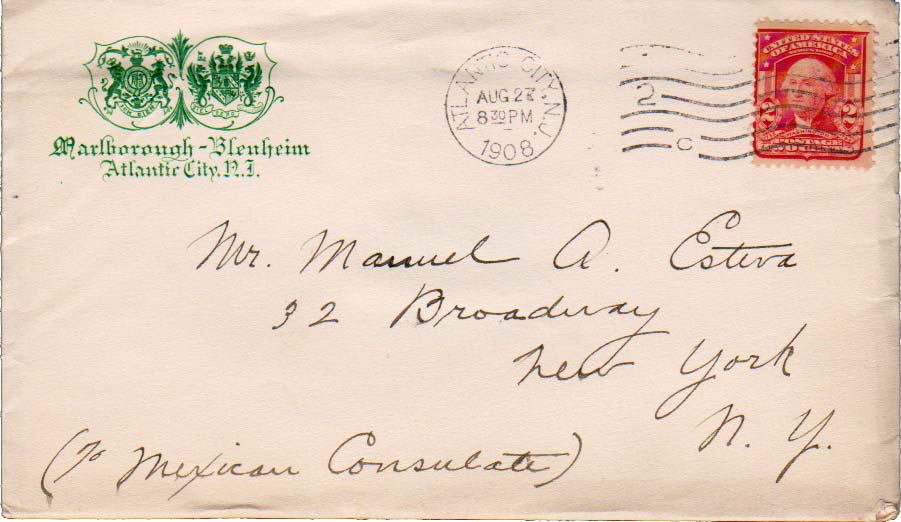 Marlborough-Blenheim
Atlantic City, N.J.
ATLANTIC CITY, N.J.
AUG 27
8 30 PM
1908
2
C
UNITED STATES
OF AMERICA
2 2
POSTAGE
Mr. Manuel A. Esteva
32 Broadway
New York
N. Y.
(To Mexican Consulate)